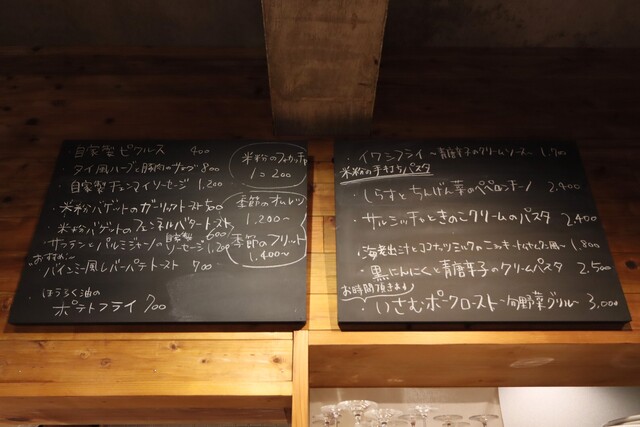 自家製ピクルス 400
・タイ風ハーブと豚肉のサラダ 800
・自家製チェンマイソーセージ 1,200
・米粉バゲットのガーリックトースト 500
・米粉バゲットのフェンネルバタートースト 600
サラミとパルミジャーノの自家製ソーセージ 1,200
おすすめ
バインミー風レバーパテトースト 700
・ほうろく油の
ポテトフライ 700
米粉のフォカッチャ
1コ 200
季節のオムレツ
1,200〜
季節のフリット
1,400〜
・イワシフライ 〜青唐辛子のクリームソース〜 1,700
米粉の手打ちパスタ
・しらすとちんげん菜のペペロンチーノ 2,400
・サルシッチャときのこクリームのパスタ 2,400
・海老出汁とココナッツミルクの 1,800
・黒にんにくと青唐辛子のクリームパスタ 2,500
お時間頂きます
・いさむポークロースト〜旬野菜グリル〜 3,000